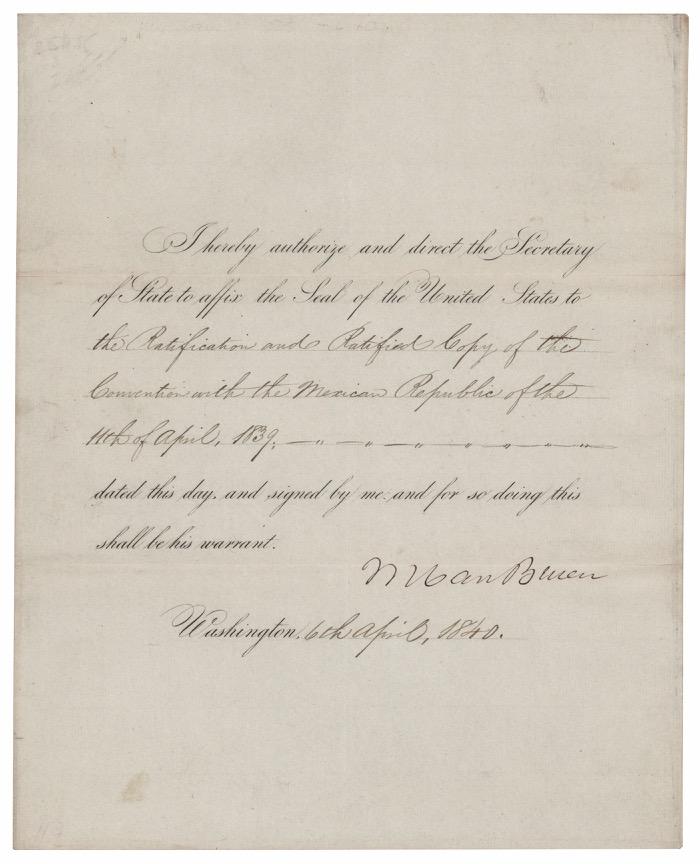 I hereby authorize and direct the Secretary
of State to affix the Seal of the United States to
the Ratification and Ratified Copy of the
Convention with the Mexican Republic of the
11th of April, 1839. — " — " — " — " — " — " — " —
dated this day, and signed by me: and for so doing this
shall be his warrant.
M Van Buren
Washington, 6th April, 1840.